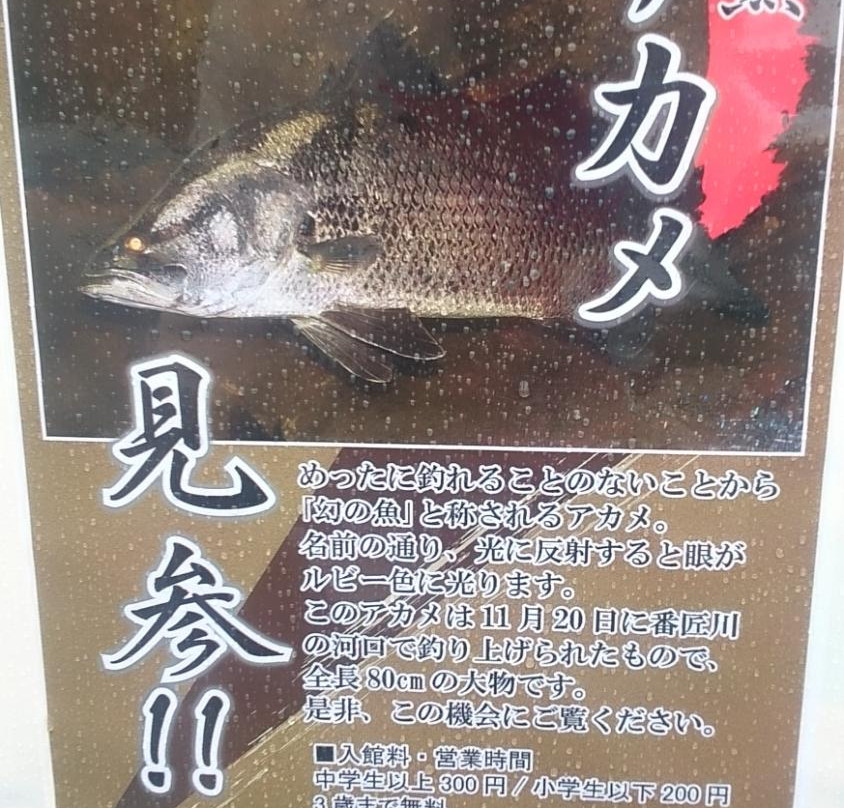 アカメ
見参!!
めったに釣れることのないことから
「幻の魚」と称されるアカメ。
名前の通り、光に反射すると眼が
ルビー色に光ります。
このアカメは11月20日に番匠川
の河口で釣り上げられたもので、
全長80cmの大物です。
是非、この機会にご覧ください。
■入館料・営業時間
中学生以上300円/小学生以下200円
3歳まで無料